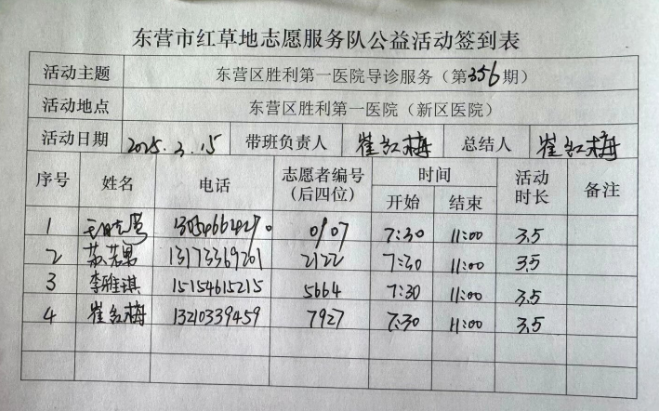 东营市红草地志愿服务队公益活动签到表
活动主题 东营区胜利第一医院导诊服务（第356期）
活动地点 东营区胜利第一医院（新区医院）
活动日期 2025.3.15 带班负责人 崔红梅 总结人 崔红梅
序号 姓名 电话 志愿者编号（后四位） 时间 开始 结束 活动时长 备注
1 0107 7:30 11:00 3.5
2 苏若男 13173369201 2122 7:30 11:00 3.5
3 李雅琪 15154615215 5664 7:30 11:00 3.5
4 崔红梅 13210339459 7927 7:30 11:00 3.5